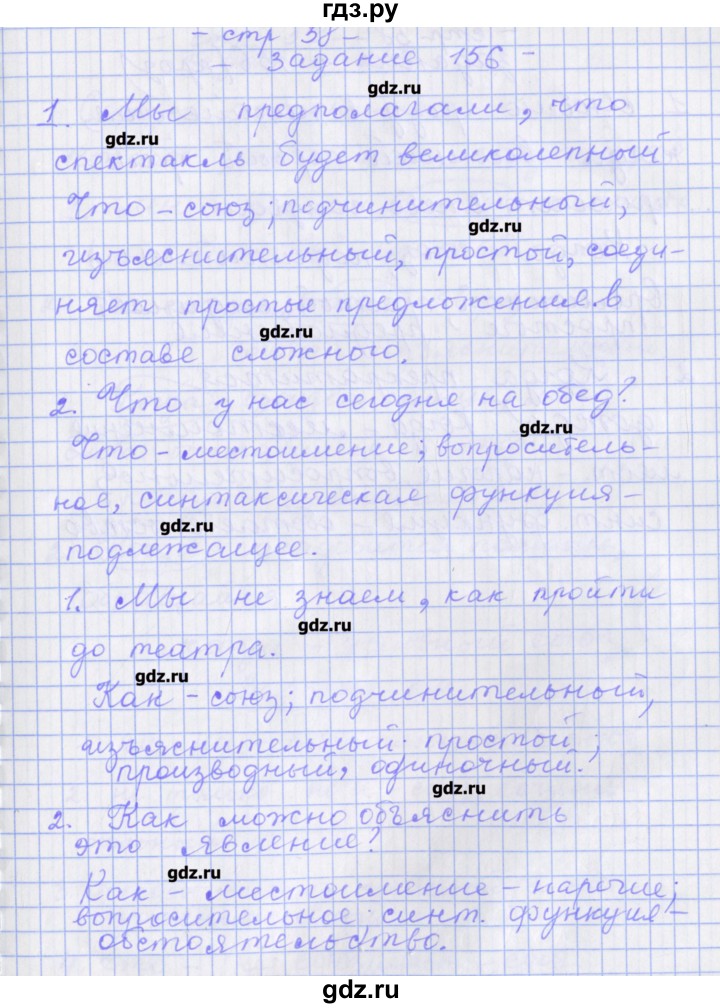 гдз.ру
- стр 38 -
- Задание 156 -
gdz.ru
1. Мы предполагали, что
gdz.ru
спектакль будет великолепный
Что - союз; подчинительный,
gdz.ru
изъяснительный, простой, соеди-
няет простые предложения в
gdz.ru
составе сложного.
2. Что у нас сегодня на обед?
gdz.ru
Что - местоимение; вопроситель-
ное, синтаксическая функция -
gdz.ru
подлежащее.
1. Мы не знаем, как пройти
gdz.ru
до театра.
gdz.ru
Как - союз; подчинительный,
изъяснительный простой;
производный, одиночный.
gdz.ru
2. Как можно объяснить
это явление?
gdz.ru
Как - местоимение - наречие;
вопросительное синт. функция -
обстоятельство.
gdz.ru